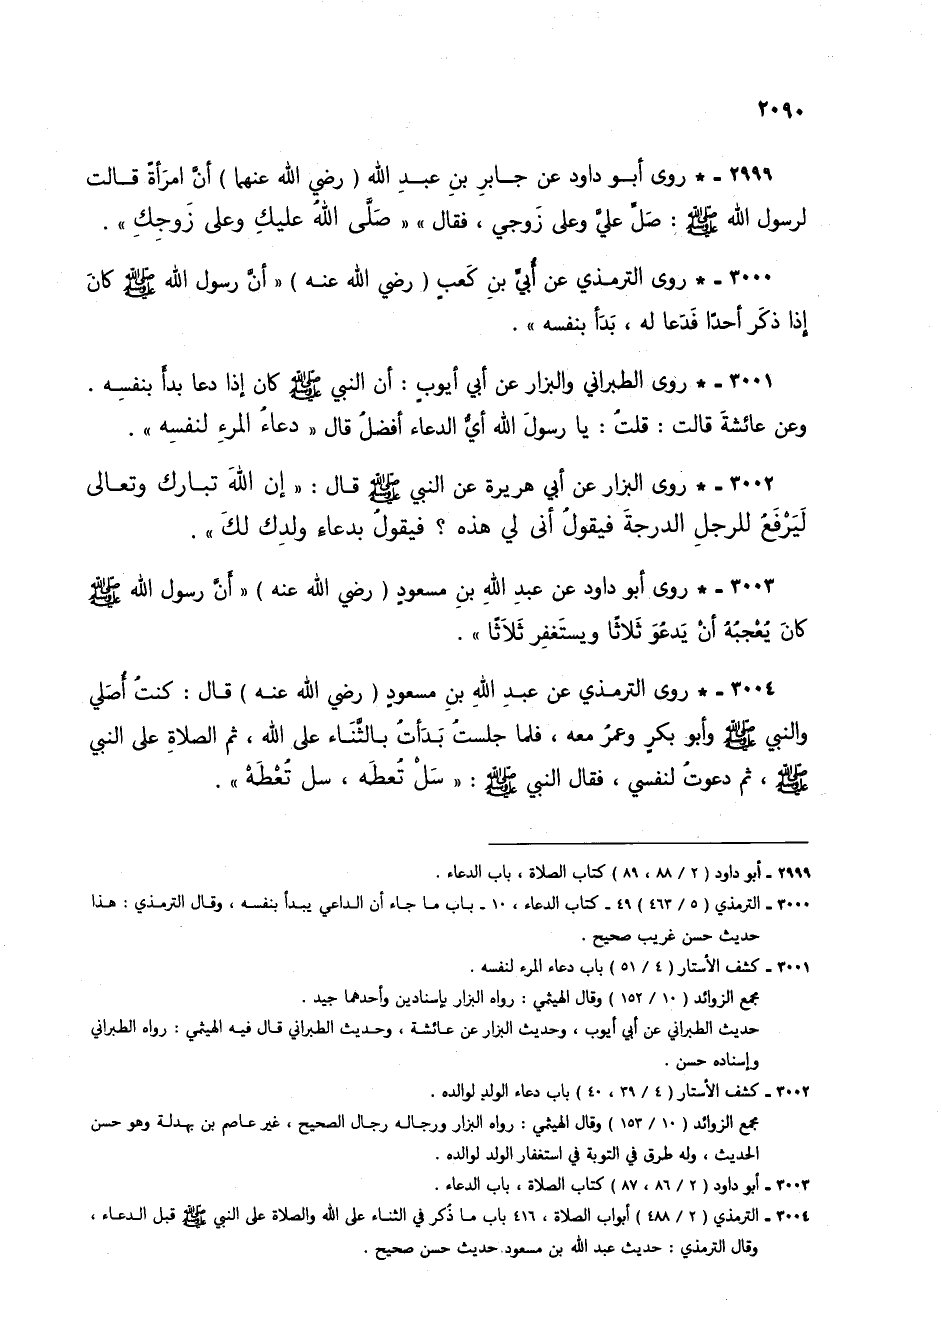 ٢٠٩٠
٢٩٩٩ ـ * روى أبـو داود عن جـابرِ بنِ عبـدِ الله ( رضي الله عنهما ) أنَّ امرَأةً قـالت
لرسول الله ﷺ : صَلِّ عليَّ وعلى زَوجي ، فقال » « صَلَّى اللهُ عليكِ وعلى زَوجِكِ » .
٣٠٠٠ ـ * روى الترمـذي عن أُبيِّ بنِ كَعبٍ ( رضي الله عنـه ) « أنَّ رسول الله ﷺ كانَ
إذا ذكَر أحدًا فَدَعا له ، بَدَأ بنفسه » .
٣٠٠١ ـ * روى الطبراني والبزار عن أبي أيوبٍ : أن النبي ﷺ كان إذا دعا بدأَ بنفسِـه .
وعن عائشةَ قالت : قلتُ : يا رسولَ الله أيُّ الدعاء أفضلُ قال « دعاءُ المرءِ لنفسِه » .
٣٠٠٢ ـ * روى البزار عن أبي هريرة عن النبي ﷺ قـال : « إن اللهَ تبـارك وتعـالى
لَيَرْفَعُ للرجلِ الدرجةَ فيقولُ أنى لي هذه ؟ فيقولُ بدعاءِ ولدِك لكَ » .
٣٠٠٣ ـ * روى أبو داود عن عبدِ اللهِ بنِ مسعودٍ ( رضي الله عنه ) « أَنَّ رسول الله ﷺ
كانَ يُعْجِبُهُ أنْ يَدعُوَ ثَلاثًا ويستَغفِر ثَلاَثًا » .
٣٠٠٤ ـ * روى الترمـذي عن عبـدِ اللهِ بنِ مسعودٍ ( رضي الله عنـه ) قـال : كنتُ أُصَلي
والنبي ﷺ وأبو بكرٍ وعمرُ معه ، فلما جلستُ بَدَأتُ بـالثَّنَاء على الله ، ثم الصلاةِ على النبي
ﷺ ، ثم دعوتُ لنفسي ، فقال النبي ﷺ : « سَلْ تُعطَه ، سل تُعْطَهْ » .
٢٩٩٩ ـ أبو داود ( ٢ / ٨٨ ، ٨٩ ) كتاب الصلاة ، باب الدعاء .
٣٠٠٠ ـ الترمذي ( ٥ / ٤٦٣ ) ٤٩ ـ كتاب الدعاء ، ١٠ ـ بـاب مـا جـاء أن الداعي يبدأ بنفسه ، وقـال الترمـذي : هـذا
حديث حسن غريب صحيح .
٣٠٠١ ـ كشف الأستار ( ٤ / ٥١ ) باب دعاء المرء لنفسه .
مجمع الزوائد ( ١٠ / ١٥٢ ) وقال الهيثمي : رواه البزار بإسنادين وأحدهما جيد .
حديث الطبراني عن أبي أيوب ، وحديث البزار عن عـائشة ، وحـديث الطبراني قـال فيـه الهيثمي : رواه الطبراني
وإسناده حسن .
٣٠٠٢ ـ كشف الأستار ( ٤ / ٣٩ ، ٤٠ ) باب دعاء الولدِ لوالده .
مجمع الزوائد ( ١٠ / ١٥٣ ) وقال الهيثمي : رواه البزار ورجالـه رجال الصحيح ، غير عـاصم بن بهدلـة وهو حسن
الحديث ، وله طرق في التوبة في استغفار الولد لوالده .
٣٠٠٣ ـ أبو داود ( ٢ / ٨٦ ، ٨٧ ) كتاب الصلاة ، باب الدعاء .
٣٠٠٤ ـ الترمذي ( ٢ / ٤٨٨ ) أبواب الصلاة ، ٤١٦ باب مـا ذُكر في الثناء على الله والصلاة على النبي ﷺ قبل الـدعـاء ،
وقال الترمذي : حديث عبد الله بن مسعود حديث حسن صحيح .